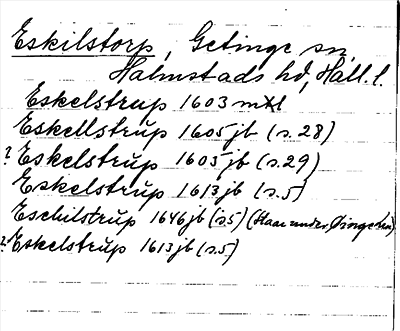 Eskilstorp, Getinge sn,
Halmstads hd, Hall. l.
Eskelstrup 1603 mtl
Eskellstrup 1605 jb (s. 28)
? Eskelstrup 1605 jb (s. 29)
Eskelstrup 1613 jb (s. 5)
Eschilstrup 1646 jb (s. 5) (Haar under
? Eskelstrup 1613 jb (s. 5)